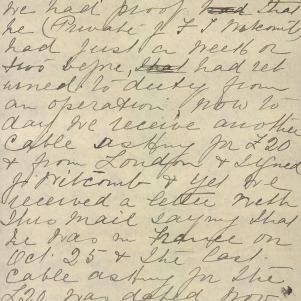 we had proof had that
he (Private F J Witcomb)
had just a week or
two before, that had ret
urned to duty from
an operation now to
day we receive another
cable asking for £20
& from London & signed
J. Witcomb & yet we
received a letter with
this mail saying that
he was in France on
Oct. 25 & the last
cable asking for the
£20 was dated Nov